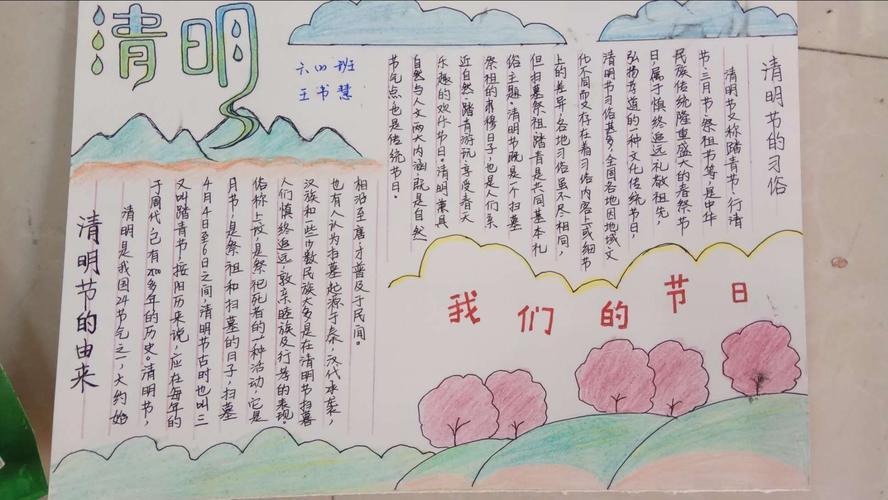 清明
六(4)班
王书慧
清明节的习俗
清明节又称踏青节、行清
节、三月节、祭祖节等,是中华
民族传统隆重盛大的春祭节
日,属于慎终追远、礼敬祖先,
弘扬孝道的一种文化传统节日,
清明节习俗甚多,全国各地因地域文
化不同而又存在着习俗内容上或细节
上的差异,各地习俗虽不尽相同,
但扫墓祭祖、踏青是共同基本礼
俗主题。清明节既是一个扫墓
祭祖的肃穆日子,也是人们亲
近自然、踏青游玩、享受春天
乐趣的欢乐节日。清明兼具
自然与人文两大内涵,既是自然
节气点也是传统节日。
清明节的由来
清明是我国24节气之一,大约始
于周代,已有2500多年的历史。清明节,
又叫踏青节,按阳历来说,应在每年的
4月4日至6日之间,清明节古时也叫三
月节,是祭祖和扫墓的日子,扫墓
俗称上坟,是祭祀死者的一种活动,它是
人们慎终追远、敦亲睦族及行孝的表现。
汉族和一些少数民族大多是在清明节扫墓
也有人认为扫墓起源于秦,汉代承袭,
相沿至唐,才普及于民间。
我们的节日